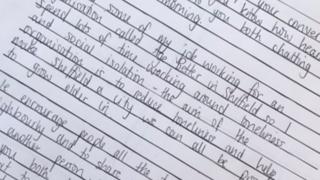 your convers
know how hear
morning to you both chatting
some of my job working for an
organisation called the in Sheffield so I
spend lots of time working around loneliness
and social isolation - the aim of the
organisation is to reduce loneliness and help
make Sheffield a city we can all be
to grow older in
We encourage people all the
neighbourly and to share
another person
you both